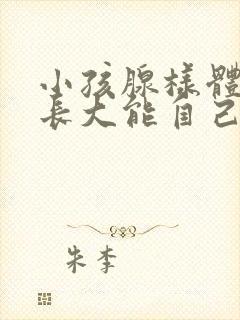 小孩腺樣體
長大能自己
朱李